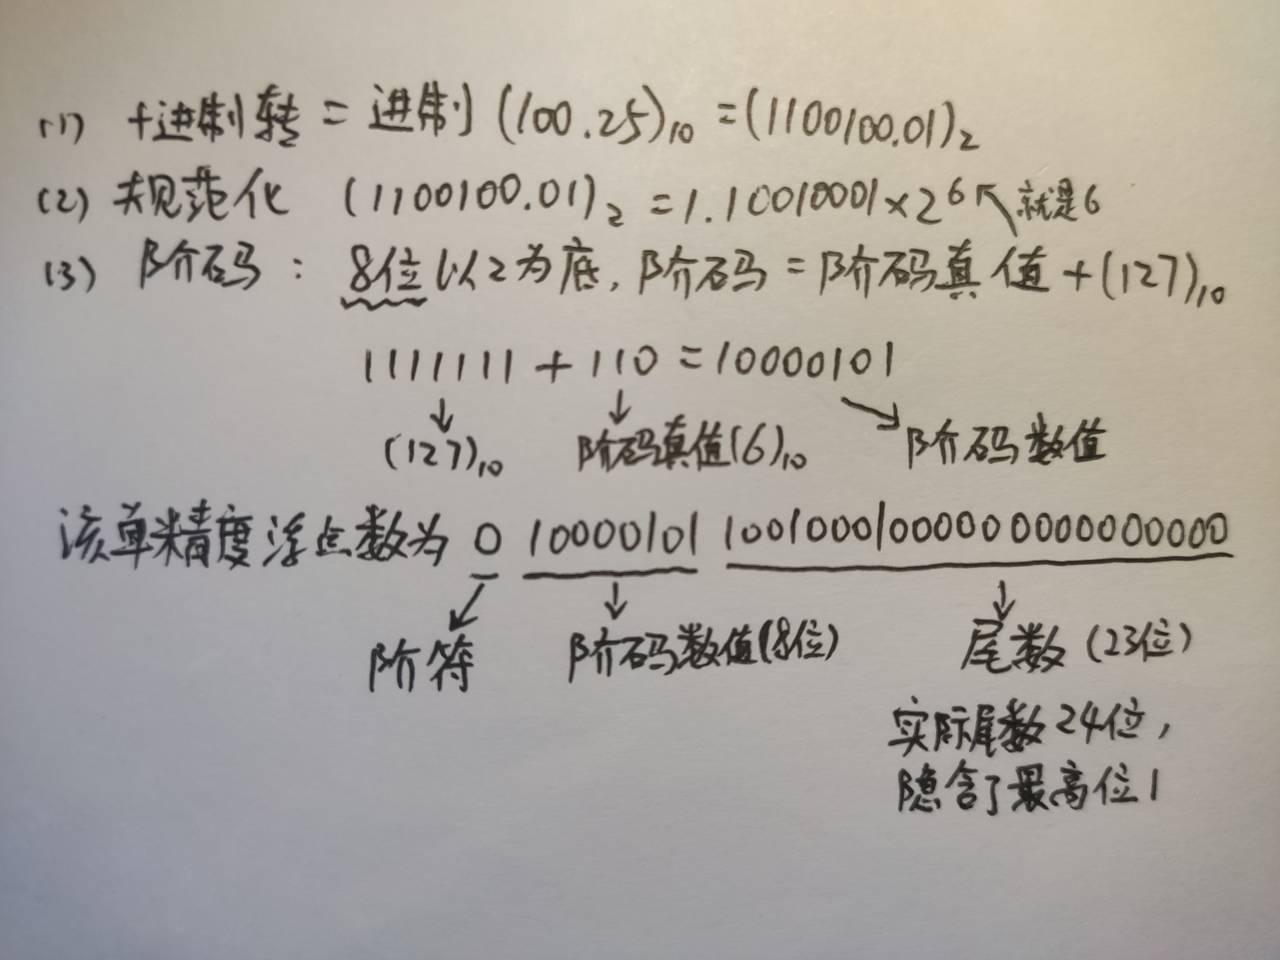 (1) 十进制转二进制 (100.25)₁₀ = (1100100.01)₂
(2) 规范化 (1100100.01)₂ = 1.10010001×2⁶ 就是6
(3) 阶码: 8位以2为底, 阶码=阶码真值+(127)₁₀
1111111 + 110 = 10000101
(127)₁₀ 阶码真值(6)₁₀ 阶码数值
该单精度浮点数为 0 10000101 10010001000000000000000
阶符 阶码数值(8位) 尾数 (23位)
实际尾数24位,
隐含了最高位1